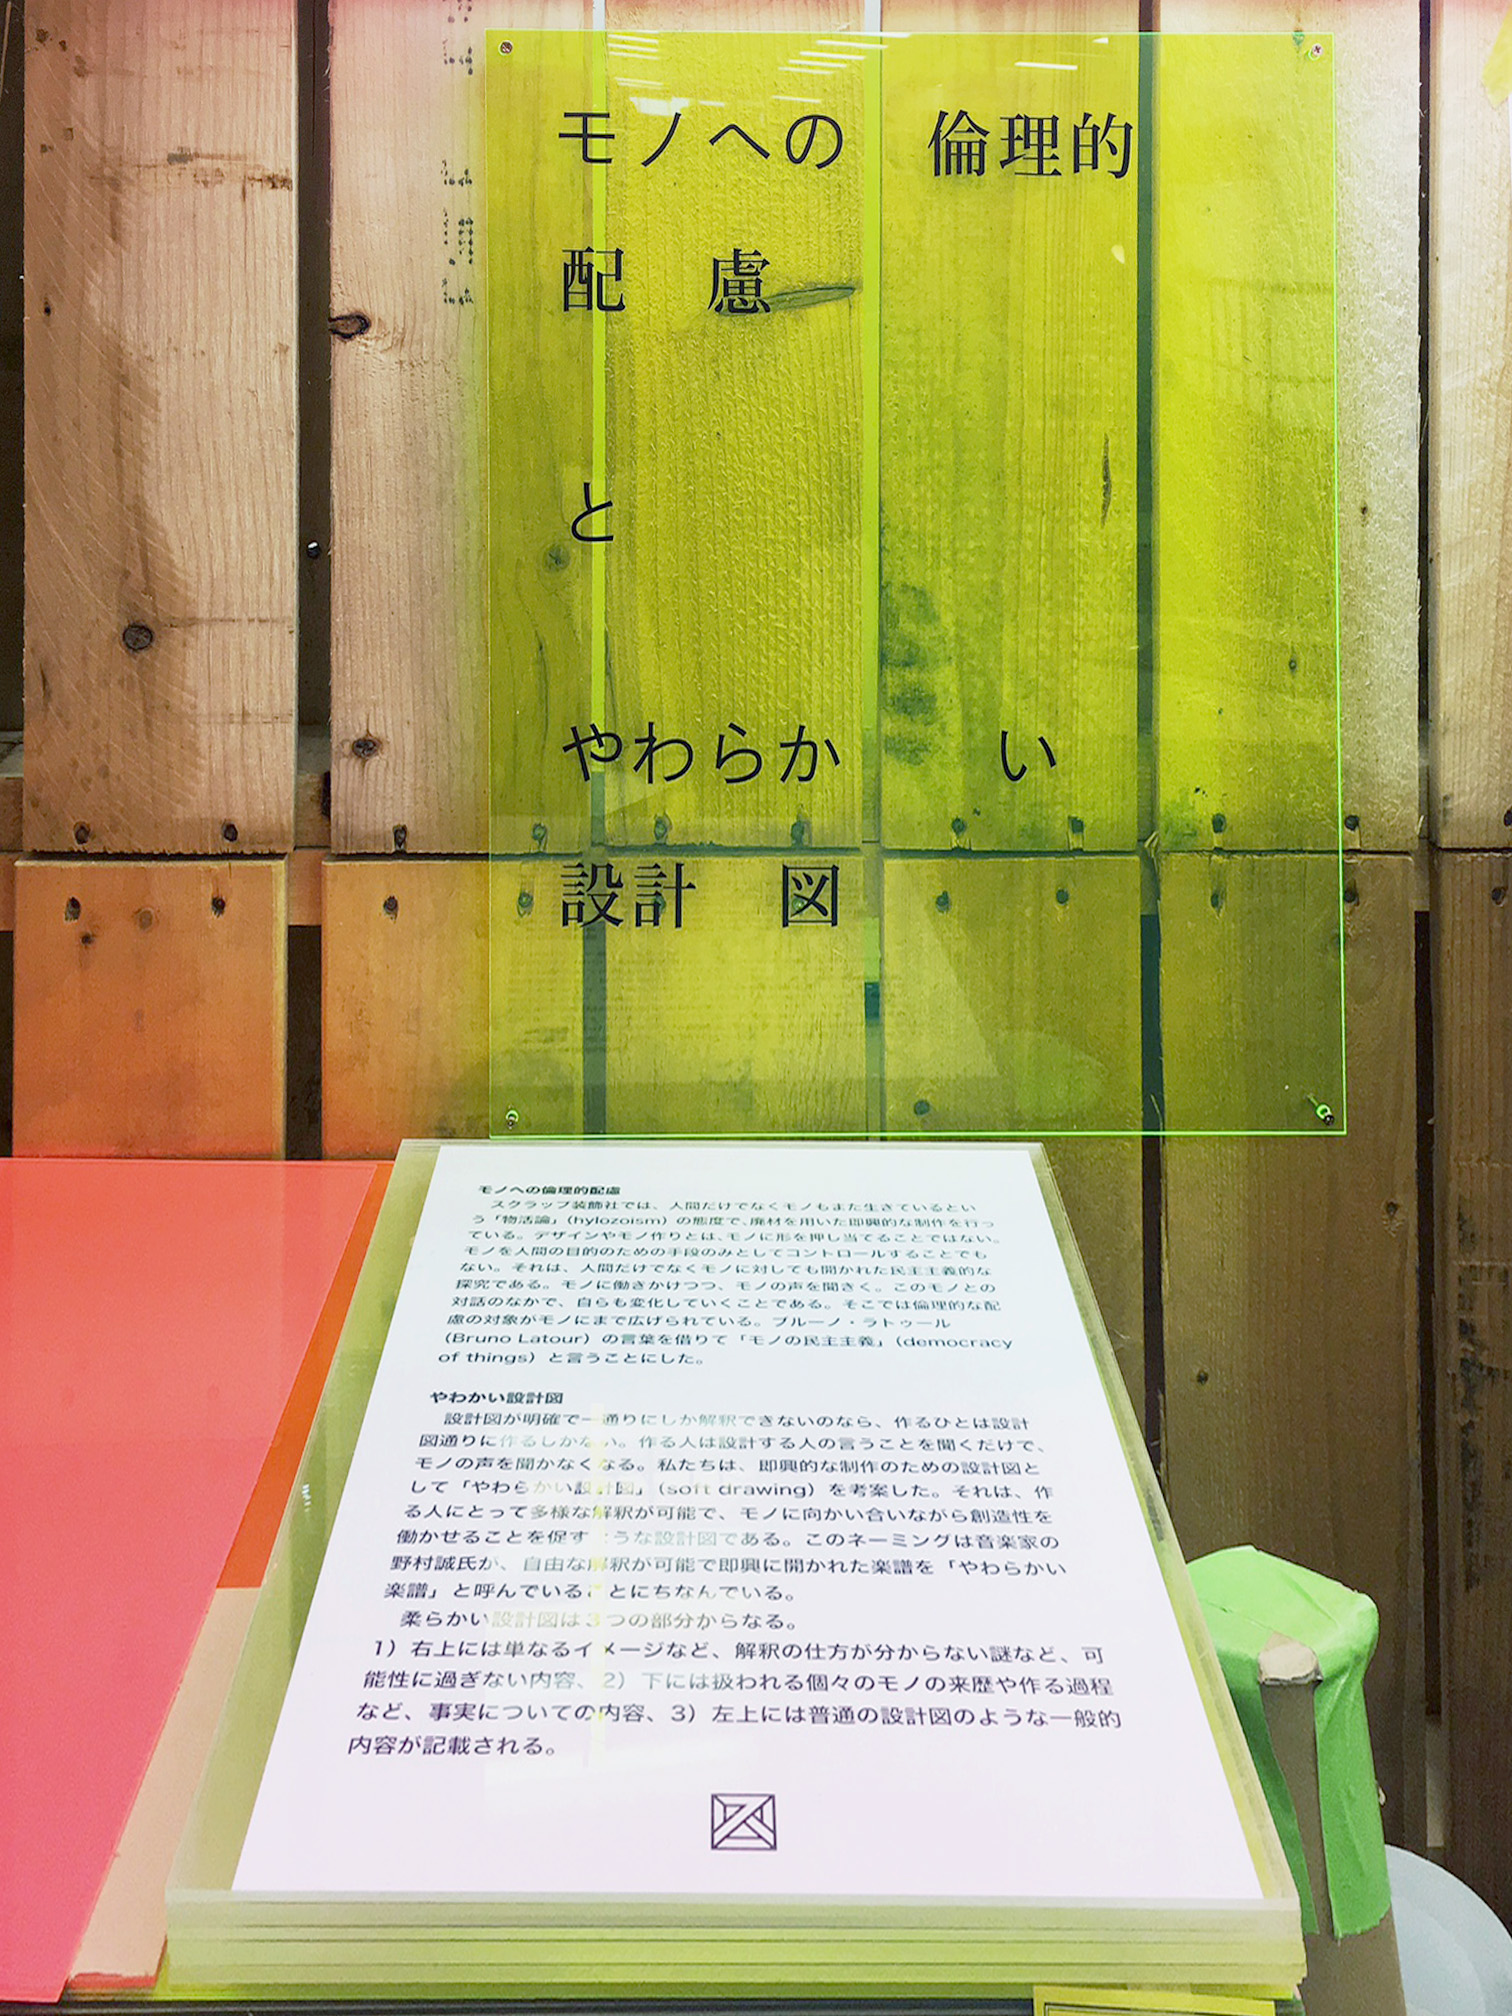 モノへの　倫理的
配　慮
と
やわらか　　い
設計　図
モノへの倫理的配慮
スクラップ装飾社では、人間だけでなくモノもまた生きているとい
う「物活論」（hylozoism）の態度で、廃材を用いた即興的な制作を行っ
ている。デザインやモノ作りとは、モノに形を押し当てることではない。
モノを人間の目的のための手段のみとしてコントロールすることでも
ない。それは、人間だけでなくモノに対しても開かれた民主主義的な
探究である。モノに働きかけつつ、モノの声を聞きく。このモノとの
対話のなかで、自らも変化していくことである。そこでは倫理的な配
慮の対象がモノにまで広げられている。ブルーノ・ラトゥール
（Bruno Latour）の言葉を借りて「モノの民主主義」（democracy
of things）と言うことにした。
やわかい設計図
設計図が明確で一通りにしか解釈できないのなら、作るひとは設計
図通りに作るしかない。作る人は設計する人の言うことを聞くだけで、
モノの声を聞かなくなる。私たちは、即興的な制作のための設計図と
して「やわらかい設計図」（soft drawing）を考案した。それは、作
る人にとって多様な解釈が可能で、モノに向かい合いながら創造性を
働かせることを促すような設計図である。このネーミングは音楽家の
野村誠氏が、自由な解釈が可能で即興に開かれた楽譜を「やわらかい
楽譜」と呼んでいることにちなんでいる。
柔らかい設計図は３つの部分からなる。
1）右上には単なるイメージなど、解釈の仕方が分からない謎など、可
能性に過ぎない内容、2）下には扱われる個々のモノの来歴や作る過程
など、事実についての内容、3）左上には普通の設計図のような一般的
内容が記載される。